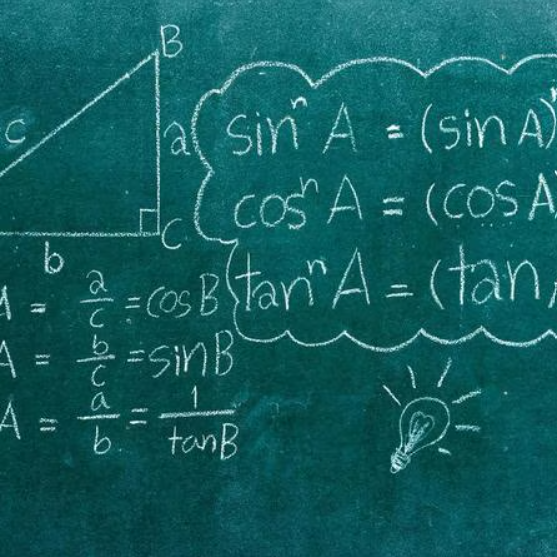 B
c
a
C
b
sinⁿ A = (sin A)ⁿ
cosⁿ A = (cos A)
tanⁿ A = (tan
A = a/c = cos B
A = b/c = sin B
A = a/b = 1/tan B